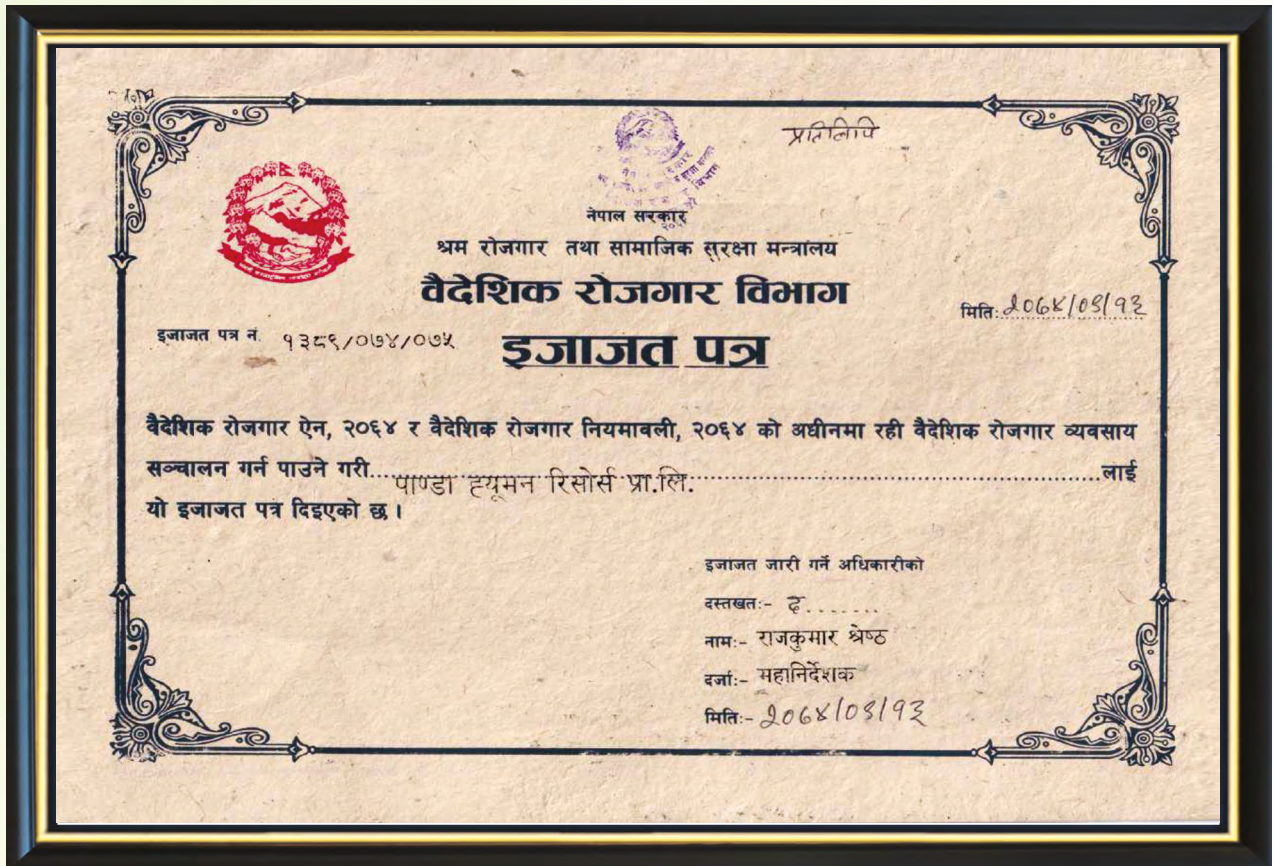 प्रतिलिपि
नेपाल सरकार
श्रम रोजगार तथा सामाजिक सुरक्षा मन्त्रालय
वैदेशिक रोजगार विभाग
मिति:
इजाजत पत्र नं. १३८९/०७४/०७५
इजाजत पत्र
वैदेशिक रोजगार ऐन, २०६४ र वैदेशिक रोजगार नियमावली, २०६४ को अधीनमा रही वैदेशिक रोजगार व्यवसाय
सञ्चालन गर्न पाउने गरी...पाण्डा ह्यूमन रिसोर्स प्रा.लि...........लाई
यो इजाजत पत्र दिइएको छ ।
इजाजत जारी गर्ने अधिकारीको
दस्तखत:- द.......
नाम:- राजकुमार श्रेष्ठ
दर्जा:- महानिर्देशक
मिति:-